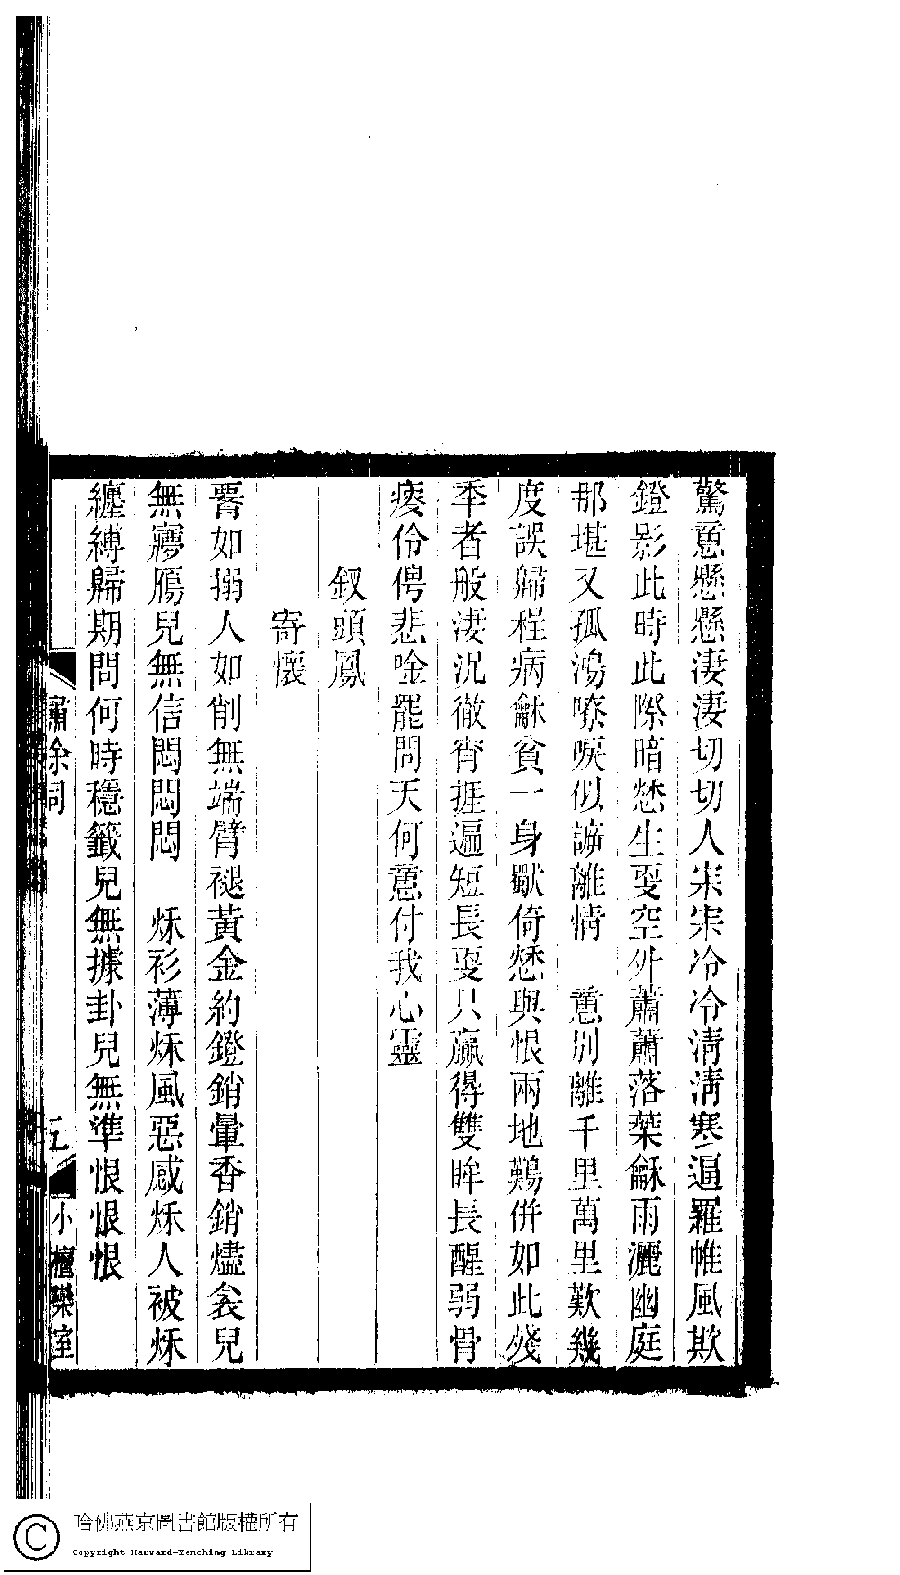 驚意懸懸淒淒切切人宋宋冷冷清清寒逼羅帷風欺
鐙影此時此際暗愁生耍空外蕭蕭落葉龢雨灑幽庭
那堪又孤鴻嘹唳似訴離情　意別離千里萬里歎幾
度誤歸程病龢貧一身獸倚愁與恨兩地鷬併如此殘
秊者般淒況徹宵捱遍短長耍只贏得雙眸長醒弱骨
瘘伶俜悲唫罷問天何意付我心靈
釵頭鳳
寄懷
脣如搦人如削無端臂褪黃金約鐙銷暈香銷燼衾兒
無夢鴈兒無信悶悶悶　秌衫薄秌風惡感秌人被秌
纏縛歸期問何時穩籤兒無據卦兒無準恨恨恨
簫余詞
五
小檀欒室
哈佛燕京圖書館版權所有
Copyright Harvard-Yenching Library